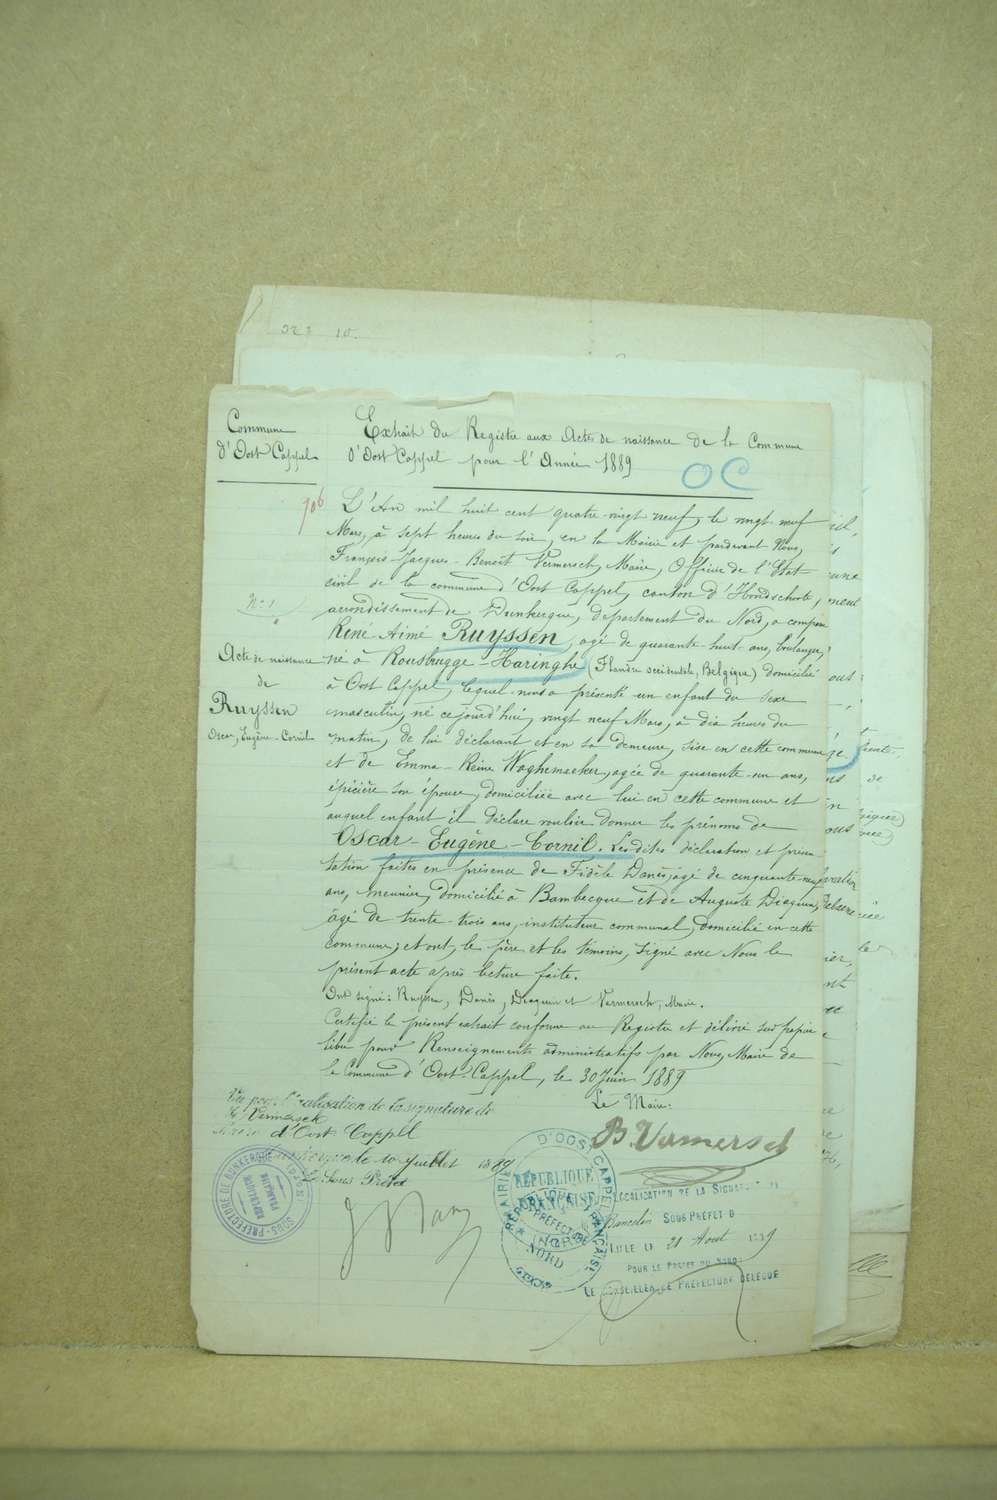 Commune
d'Oost Cappel
Extrait du Registre aux Actes de naissance de la Commune
d'Oost Cappel pour l'Année 1889
OC
706
L'An mil huit cent quatre vingt neuf, le vingt neuf
Mars, à sept heures du soir, en la Mairie et pardevant Nous,
François-Jacques-Benoit Vermersch, Maire, Officier de l'Etat
civil de la commune d'Oost Cappel, canton d'Hondschoote,
arrondissement de Dunkerque, département du Nord, a comparu
René Aimé Ruyssen, agé de quarante huit ans, boulanger,
né à Rousbrugge-Haringhe (Flandre occidentale, Belgique) domicilié
à Oost Cappel, lequel nous a présenté un enfant du sexe
masculin, né cejourd'hui, vingt neuf Mars, à dix heures du
matin, de lui déclarant et en sa demeure, sise en cette commune
et de Emma-Reine Waghemaeker, agée de quarante-un ans,
épicière son épouse, domiciliée avec lui en cette commune et
auquel enfant il déclare vouloir donner les prénoms de
Oscar-Eugène-Cornil. Lesdites déclaration et présen
tation faites en présence de Fidèle Danès, agé de cinquante-neuf
ans, meunier, domicilié à Bambecque et de Auguste
âgé de trente-trois ans, instituteur communal, domicilié en cette
commune; et ont, le père et les témoins, signé avec Nous le
présent acte après lecture faite.
Ont signé: Ruyssen, Danès, et Vermersch, Maire.
Certifié le présent extrait conforme au Registre et délivré sur papier
libre pour Renseignements administratifs par Nous, Maire de
la Commune d'Oost-Cappel, le 30 Juin 1889
Le Maire:
B. Vermersch
N° 1
Acte de naissance
de
Ruyssen
Oscar, Eugène-Cornil
Vu pour légalisation de la signature de
Vermersch
Maire d'Oost-Cappel
Dunkerque le 10 Juillet 1889
Le Sous Préfet
SOUS-PRÉFECTURE DE DUNKERQUE (NORD)
RÉPUBLIQUE FRANÇAISE
MAIRIE D'OOST CAPPEL
RÉPUBLIQUE FRANÇAISE
PRÉFECTURE
NORD
LÉGALISATION DE LA SIGNATURE
SOUS PRÉFET D
LILLE LE 21 Aout 1889
POUR LE PRÉFET DU NORD
LE CONSEILLER DE PRÉFECTURE DÉLÉGUÉ